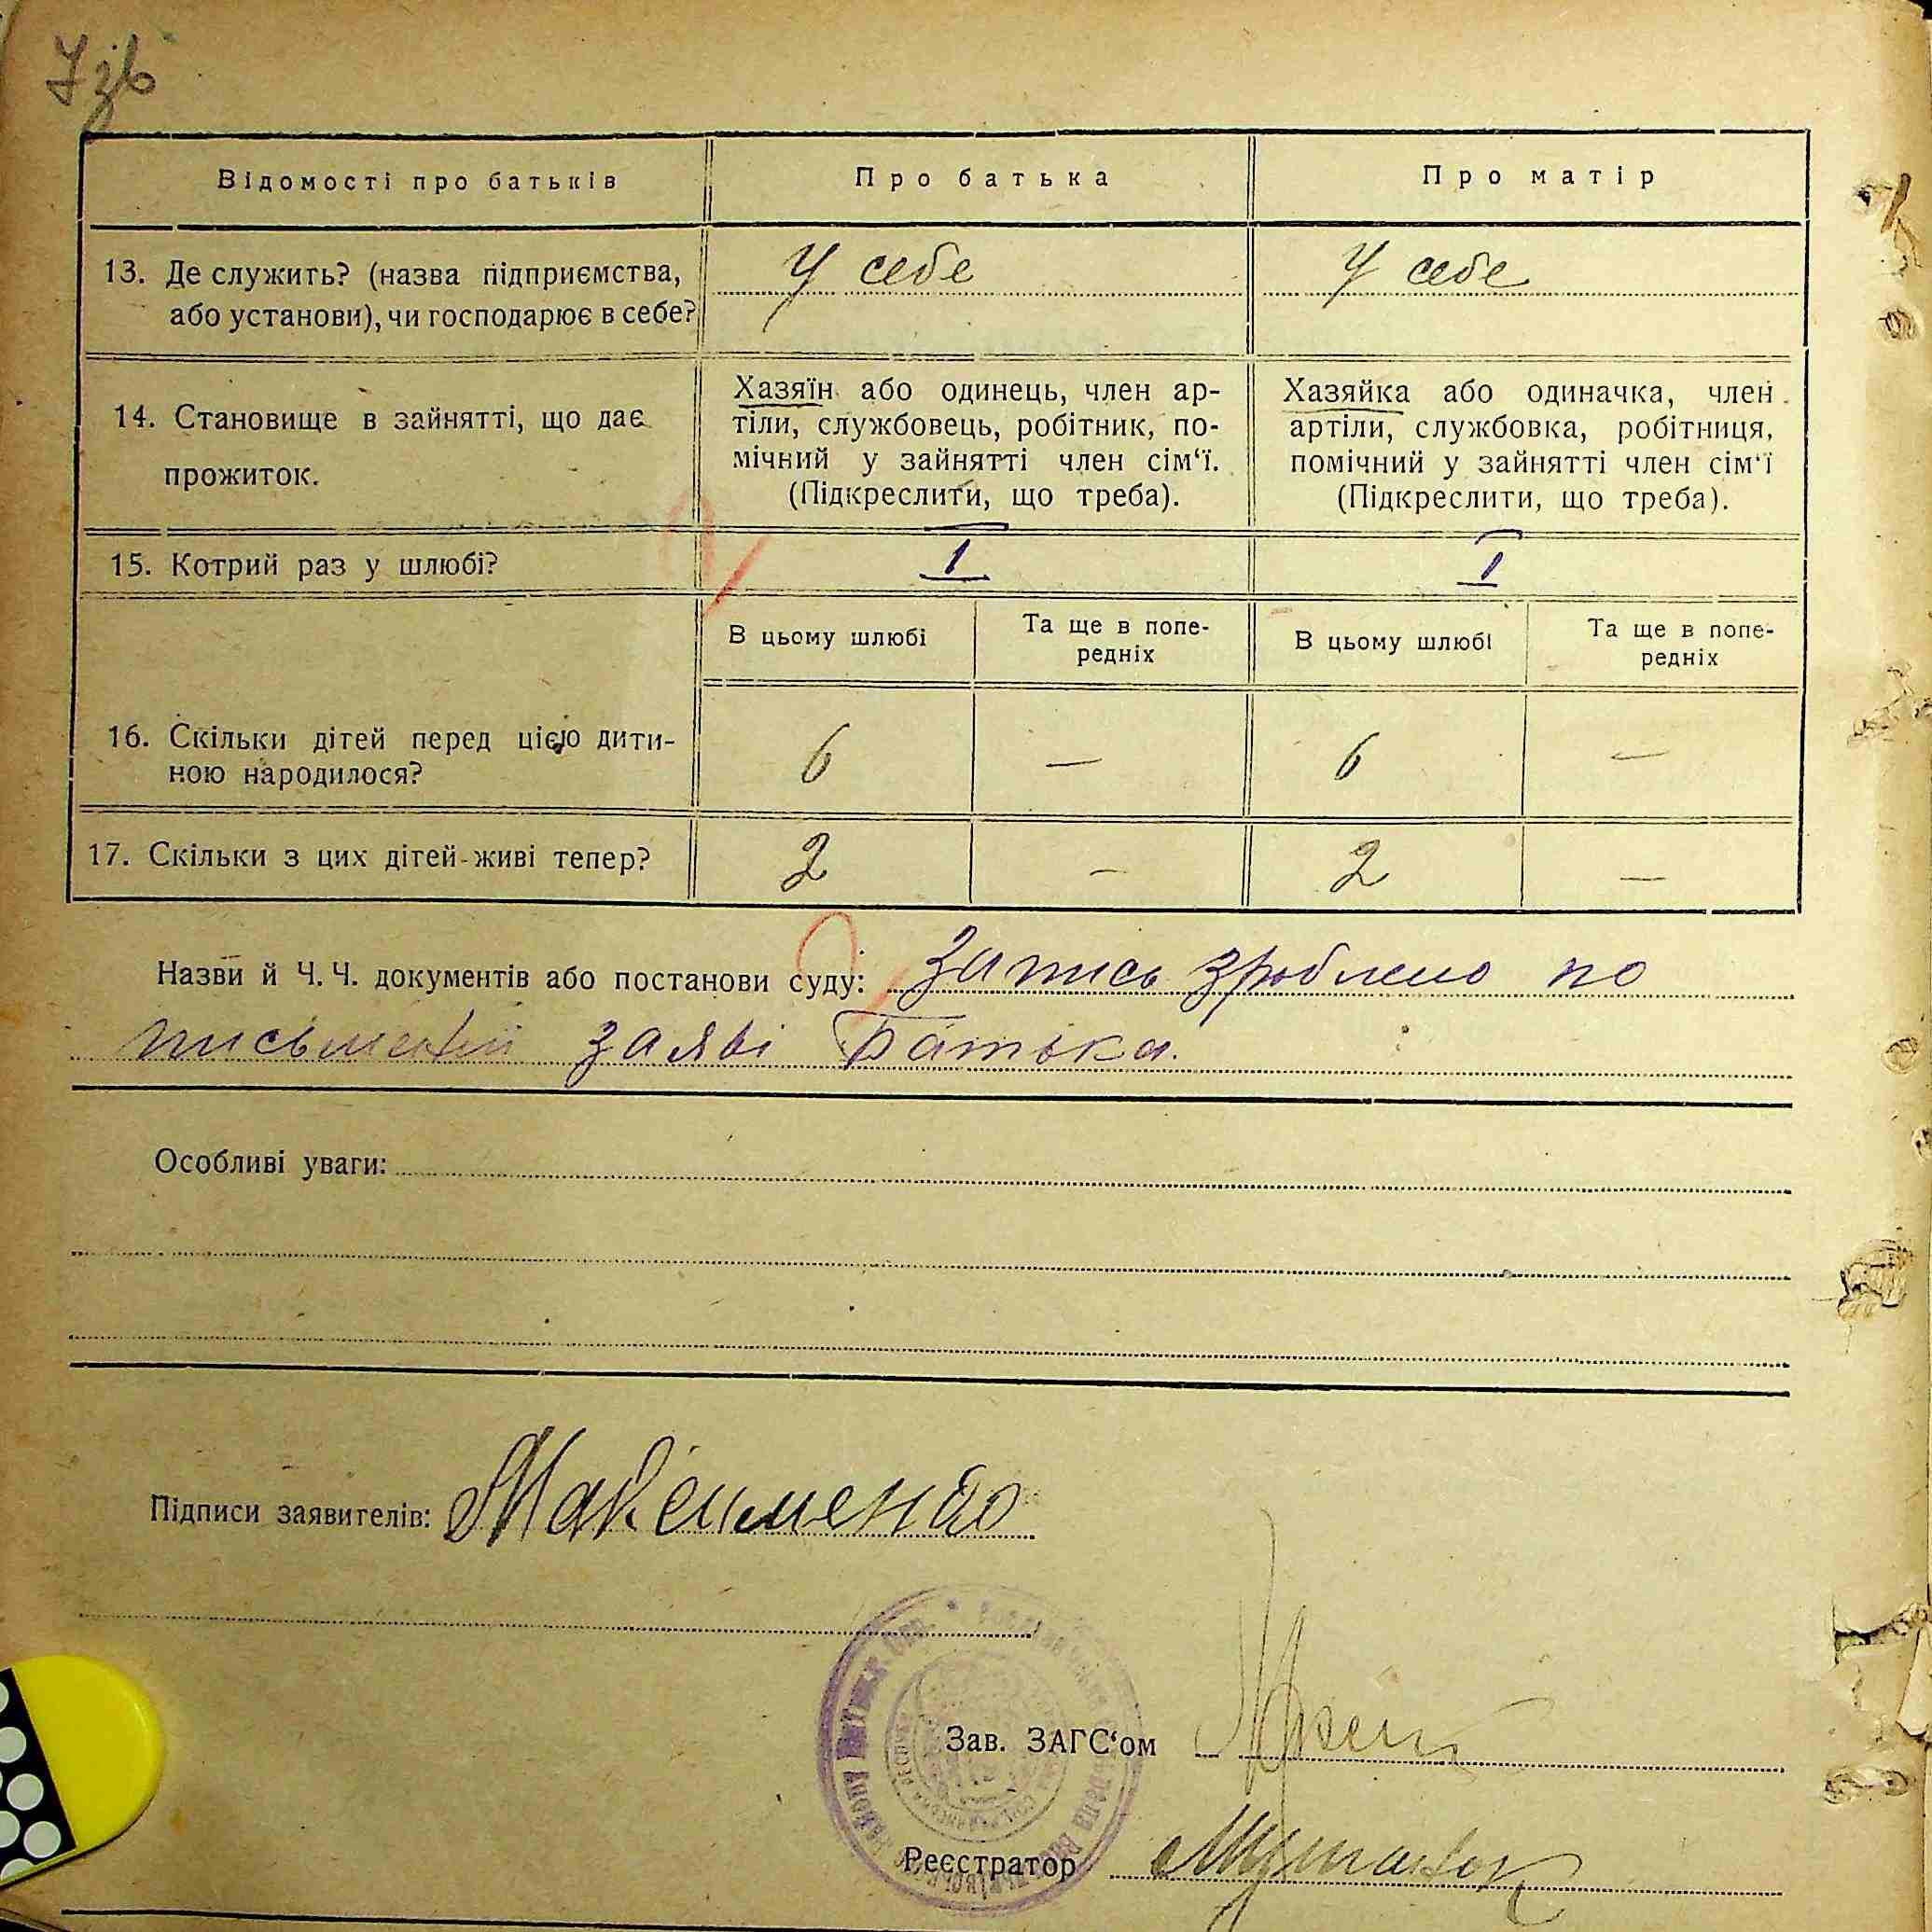 7зв
Відомості про батьків
Про батька
Про матір
13. Де служить? (назва підприємства,
або установи), чи господарює в себе?
У себе
У себе
14. Становище в зайнятті, що дає
прожиток.
Хазяїн або одинець, член ар-
тіли, службовець, робітник, по-
мічний у зайнятті член сім‘ї.
(Підкреслити, що треба).
Хазяйка або одиначка, член
артіли, службовка, робітниця,
помічний у зайнятті член сім‘ї
(Підкреслити, що треба).
15. Котрий раз у шлюбі?
1
1
В цьому шлюбі
Та ще в попе-
редніх
В цьому шлюбі
Та ще в попе-
редніх
16. Скільки дітей перед цією дити-
ною народилося?
6 — 6 —
17. Скільки з цих дітей-живі тепер?
2 — 2 —
Назви й Ч. Ч. документів або постанови суду: Запись зроблено по
письменій заяві батька.
Особливі уваги:
Підписи заявителів: Максименко
Зав. ЗАГС‘ом
Реєстратор